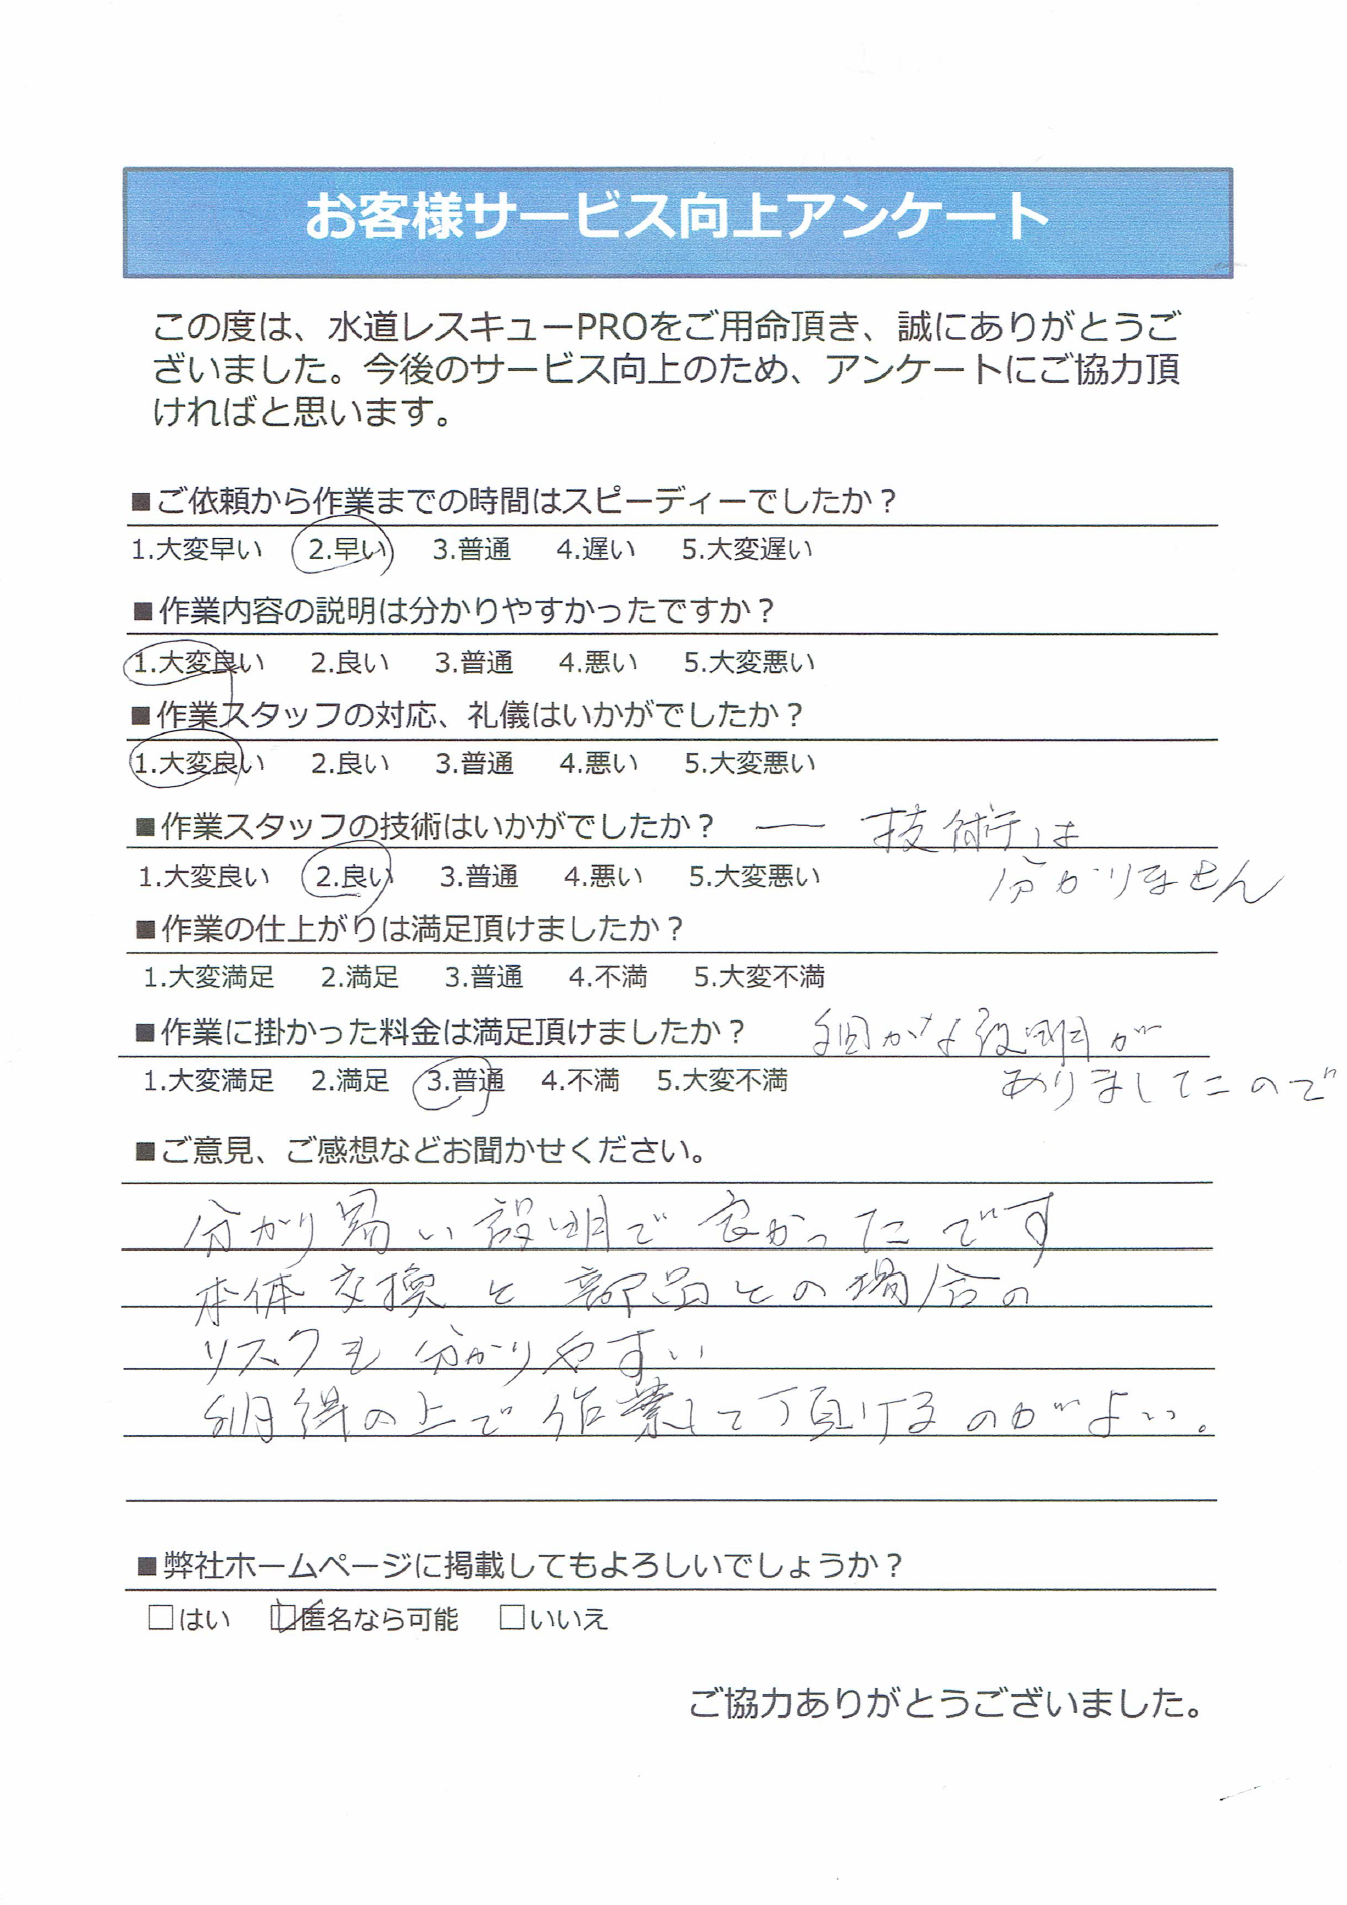 お客様サービス向上アンケート
この度は、水道レスキューPROをご用命頂き、誠にありがとうご
ざいました。今後のサービス向上のため、アンケートにご協力頂
ければと思います。
■ご依頼から作業までの時間はスピーディーでしたか？
1.大変早い 2.早い 3.普通 4.遅い 5.大変遅い
■作業内容の説明は分かりやすかったですか？
1.大変良い 2.良い 3.普通 4.悪い 5.大変悪い
■作業スタッフの対応、礼儀はいかがでしたか？
1.大変良い 2.良い 3.普通 4.悪い 5.大変悪い
■作業スタッフの技術はいかがでしたか？ ― 技術は
1.大変良い 2.良い 3.普通 4.悪い 5.大変悪い 分かりません
■作業の仕上がりは満足頂けましたか？
1.大変満足 2.満足 3.普通 4.不満 5.大変不満
■作業に掛かった料金は満足頂けましたか？ 細かな説明が
1.大変満足 2.満足 3.普通 4.不満 5.大変不満 ありましたので
■ご意見、ご感想などお聞かせください。
分かり易い説明で良かったです
本体交換と部品との場合の
リスクも分かりやすい
納得の上で作業して頂けるのがよい。
■弊社ホームページに掲載してもよろしいでしょうか？
□はい □匿名なら可能 □いいえ
ご協力ありがとうございました。